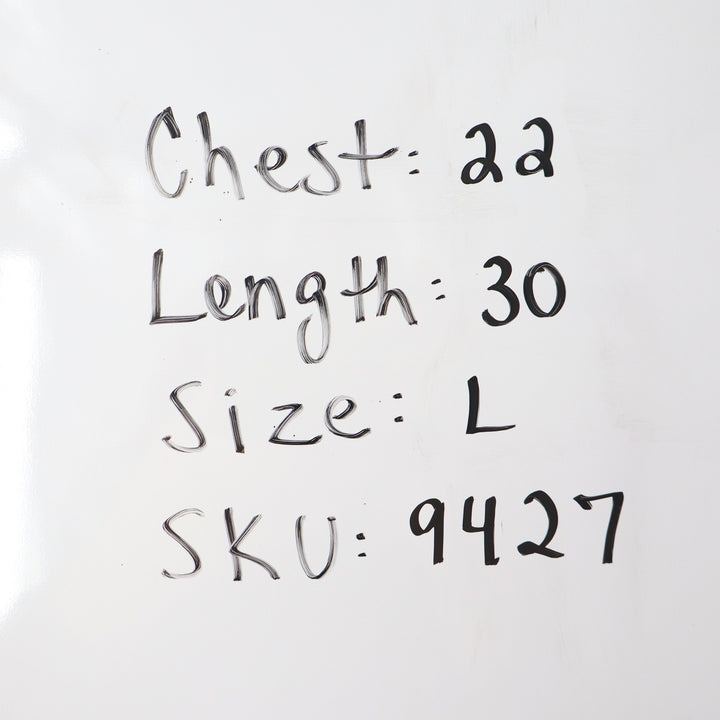 Chest: 22
Length: 30
Size: L
SKU: 9427